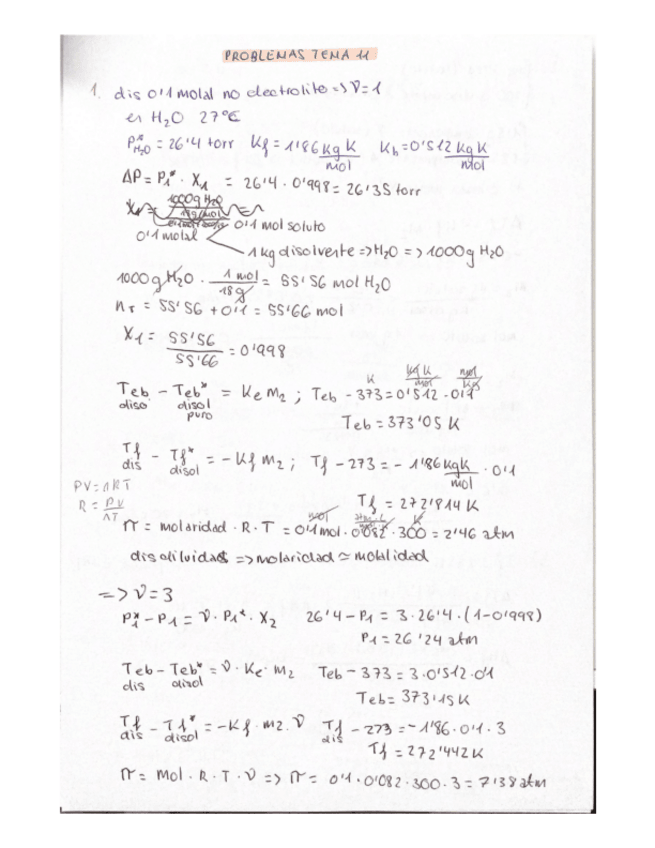 PROBLEMAS TEMA 11
1. dis 0'1 molal no electrolito => ν=1
en H2O 27°C
P*H2O = 26'4 torr Kf = 1'86 Kg K/mol Kb = 0'512 Kg K/mol
ΔP = P1* · X1 = 26'4 · 0'998 = 26'35 torr
0'1 molal
0'1 mol soluto
1 kg disolvente => H2O => 1000 g H2O
1000 g H2O · 1 mol/18 g = 55'56 mol H2O
nT = 55'56 + 0'1 = 55'66 mol
X1 = 55'56/55'66 = 0'998
Teb dis - Teb* disol puro = Ke m2 ; Teb - 373 = 0'512 K Kg/mol · 0'1 mol/Kg
Teb = 373'05 K
Tf dis - Tf* disol = -Kf m2 ; Tf - 273 = - 1'86 Kg K/mol · 0'1
Tf = 272'814 K
PV = nRT
R = PV/nT
π = molaridad · R · T = 0'1 mol · 0'082 · 300 = 2'46 atm
dis diluidas => molaridad ≃ molalidad
=> ν = 3
P1* - P1 = ν · P1* · X2 26'4 - P1 = 3 · 26'4 · (1 - 0'998)
P1 = 26'24 atm
Teb dis - Teb* disol = ν · Ke · m2 Teb - 373 = 3 · 0'512 · 0'1
Teb = 373'15 K
Tf dis - Tf* disol = -Kf · m2 · ν Tf dis - 273 = -1'86 · 0'1 · 3
Tf = 272'442 K
π = mol · R · T · ν => π = 0'1 · 0'082 · 300 · 3 = 7'38 atm